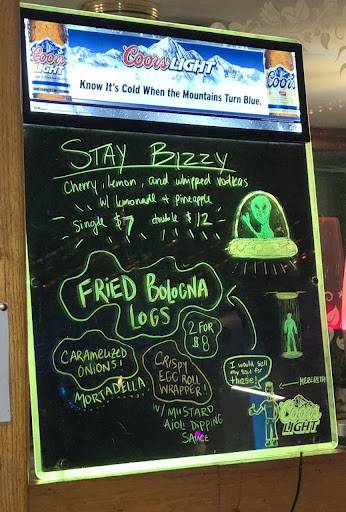 Coors LIGHT
Coors LIGHT
Coors
Know It's Cold When the Mountains Turn Blue.
STAY BIZZY
Cherry, Lemon, and whipped vodkas
w/ lemonade & pineapple
Single $7 double $12
FRIED BOLOGNA
LOGS
2 FOR
$8
CARAMELIZED
ONIONS!
MORTADELLA
CRISPY
EGG ROLL
WRAPPER!
W/ MUSTARD
AIOLI DIPPING
SAUCE
I would sell
my soul for
these!
Coors
LIGHT